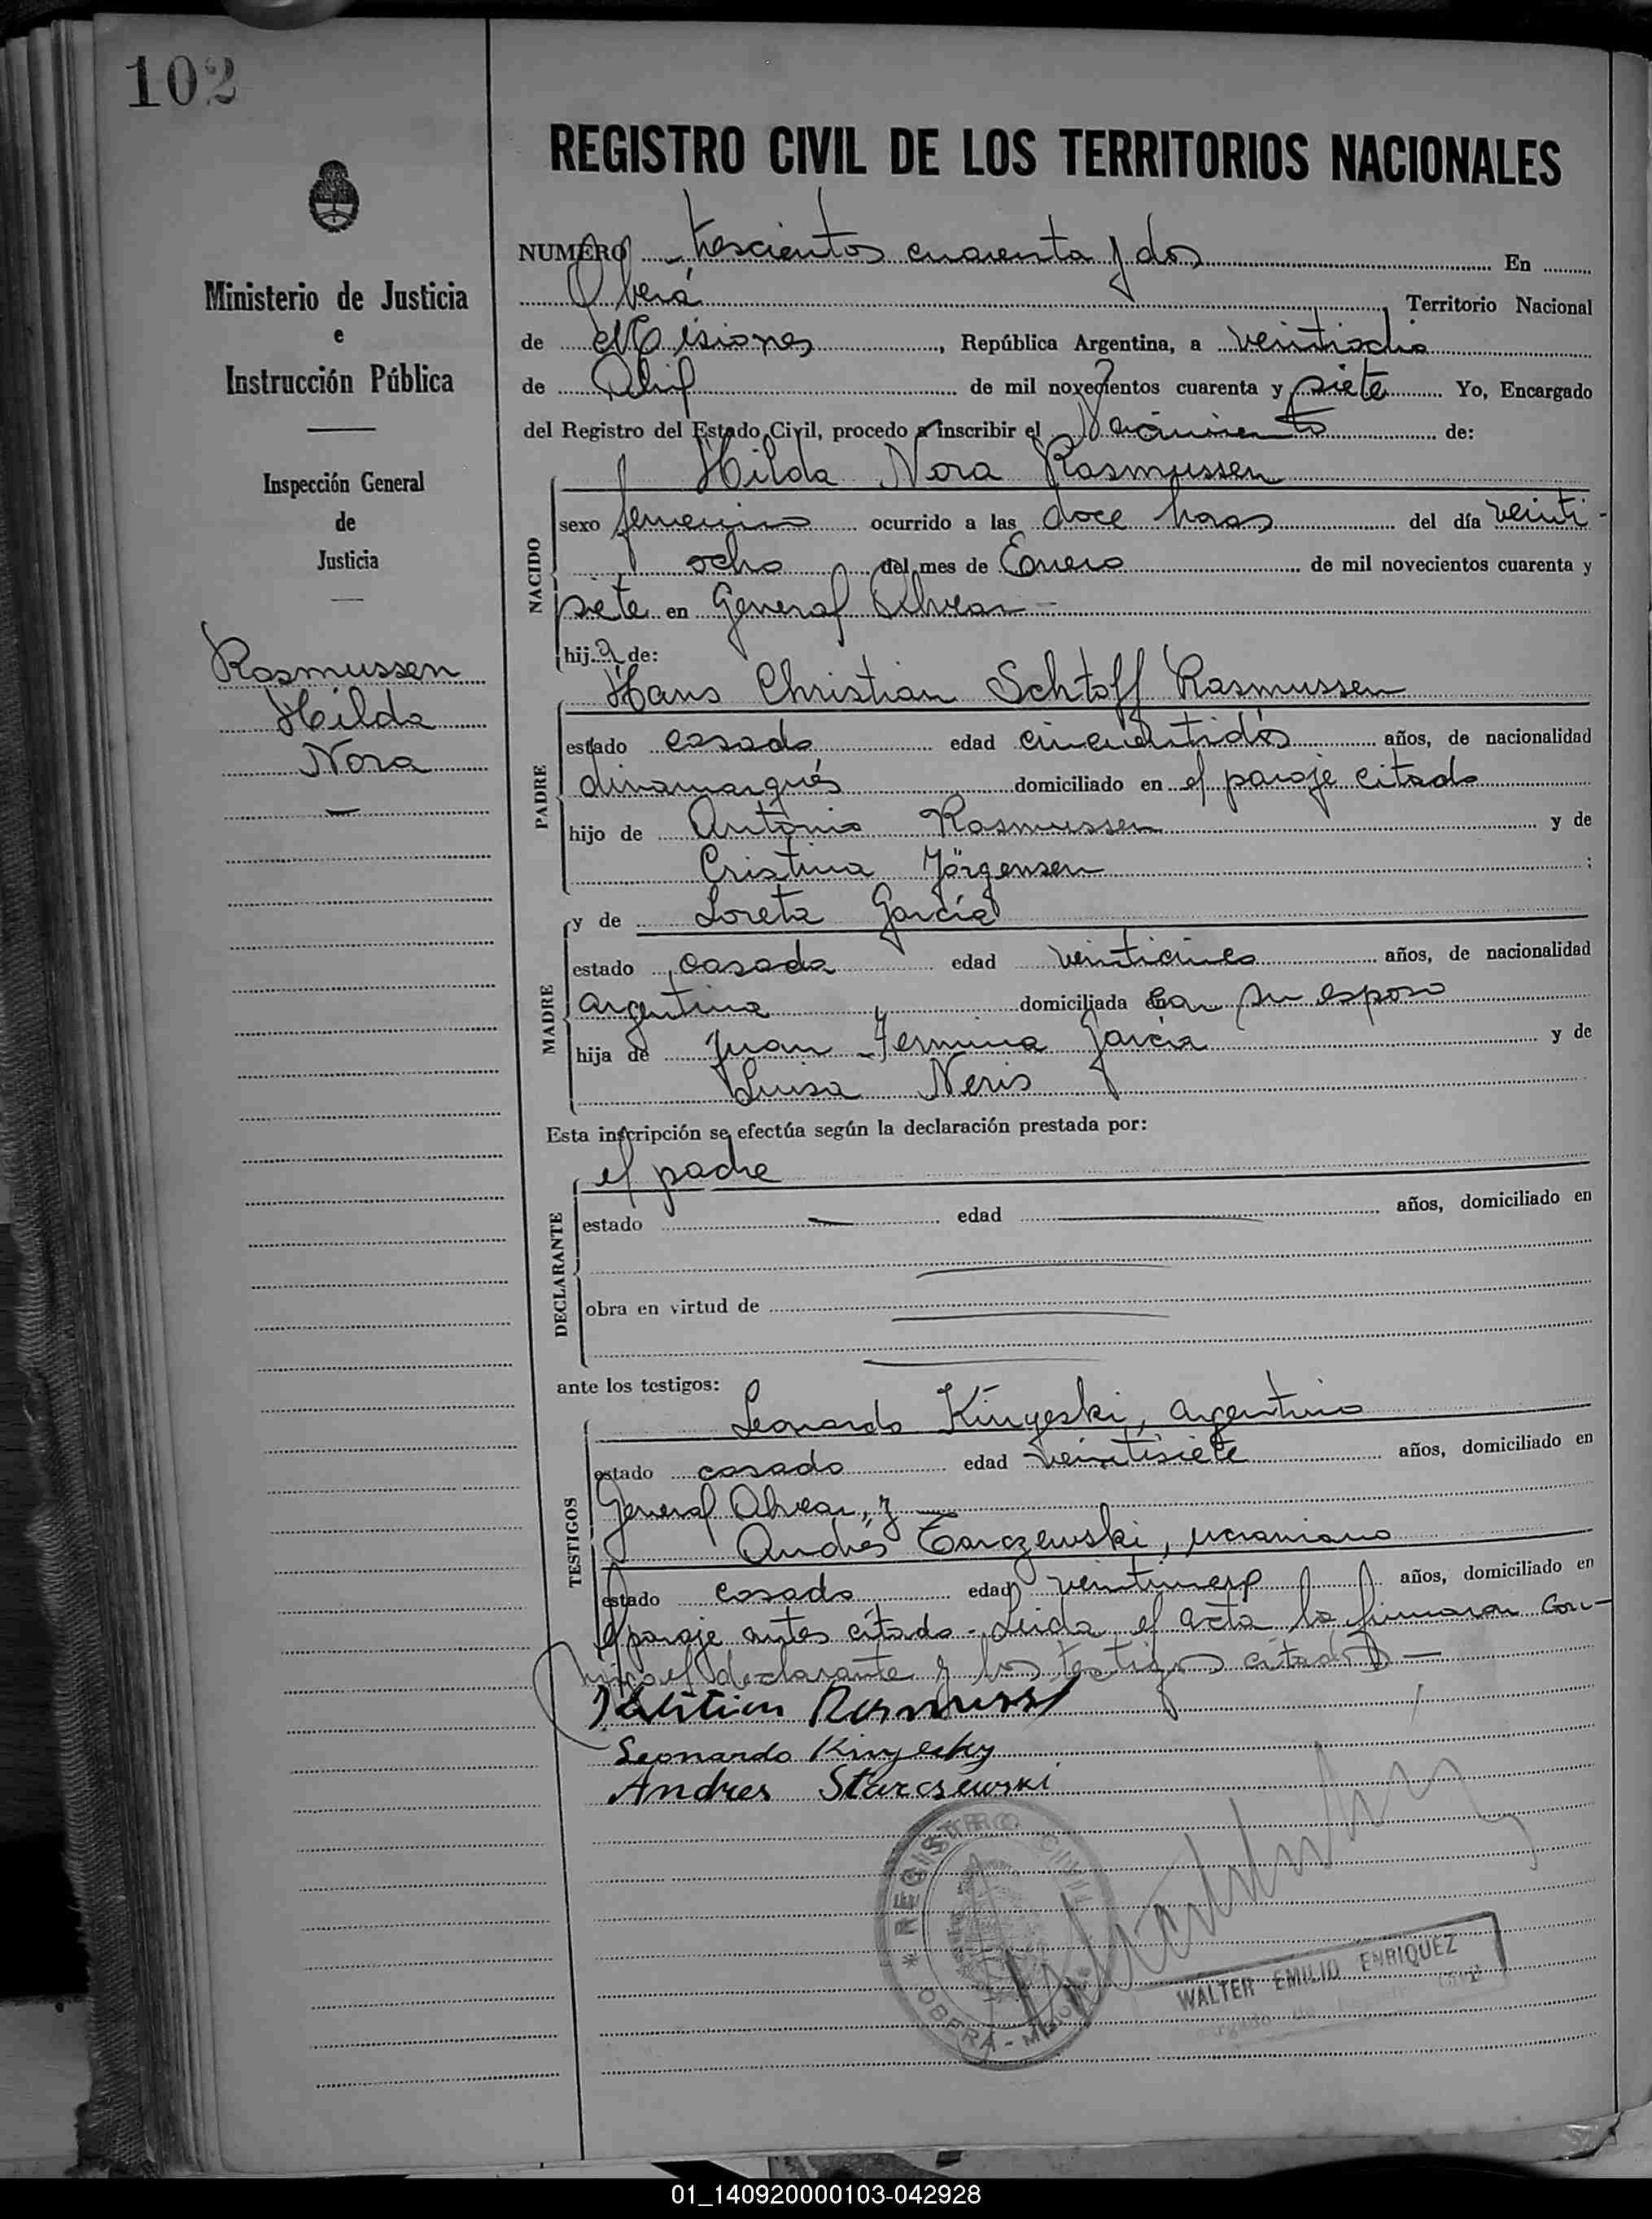 102
REGISTRO CIVIL DE LOS TERRITORIOS NACIONALES
Ministerio de Justicia
e
Instrucción Pública
Inspección General
de
Justicia
Rasmussen
Hilda
Nora
NUMERO trescientos cuarenta y dos En
Oberá Territorio Nacional
de Misiones, República Argentina, a veintiocho
de Abril de mil novecientos cuarenta y siete Yo, Encargado
del Registro del Estado Civil, procedo a inscribir el Nacimiento de:
Hilda Nora Rasmussen
NACIDO
sexo femenino ocurrido a las doce horas del día veinti-
ocho del mes de Enero de mil novecientos cuarenta y
siete en General Alvear
hija de:
Hans Christian Schtoff Rasmussen
PADRE
estado casado edad cincuentidós años, de nacionalidad
dinamarqués domiciliado en el paraje citado
hijo de Antonio Rasmussen y de
Cristina Jörgensen;
y de Loreta García
MADRE
estado casada edad veinticinco años, de nacionalidad
argentina domiciliada con su esposo
hija de Juan Fermina García y de
Luisa Neris
Esta inscripción se efectúa según la declaración prestada por:
el padre
DECLARANTE
estado edad años, domiciliado en
obra en virtud de
ante los testigos:
Leonardo Kinyeski, argentino
TESTIGOS
estado casado edad veintisiete años, domiciliado en
General Alvear, y
Andrés Tarczewski, ucraniano
estado casado edad años, domiciliado en
el paraje antes citado - Leida el acta la firmaron con-
migo el declarante y los testigos citados -
Rasmussen
Leonardo Kinyesky
Andres Starczewski
* REGISTRO CIVIL * OBERA - MISIONES
WALTER EMILIO ENRIQUEZ
01_140920000103-042928